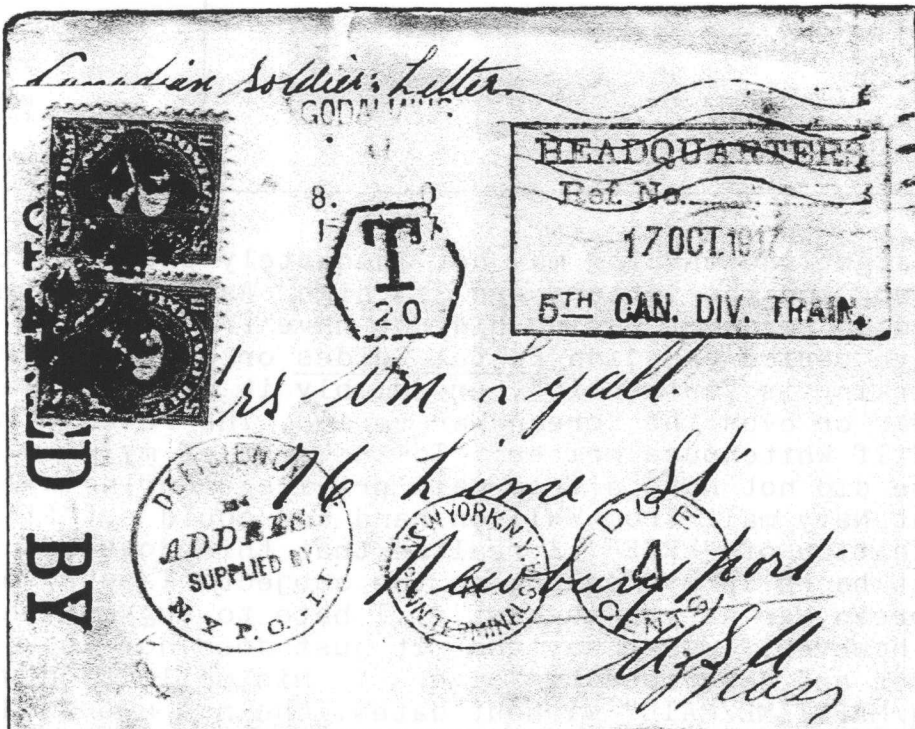 Canadian Soldier's Letter
GODALMING
HEADQUARTERS
Ref. No.
17 OCT. 1917
5TH CAN. DIV. TRAIN.
T
20
rs Wm
76 Lime St
Newburyport
U.S.A
Mass
DEFICIENCY
IN
ADDRESS
SUPPLIED BY
N.Y.P.O.-11
NEW YORK, N.Y.
TERMINAL STA
DUE
4
CENTS
ED BY